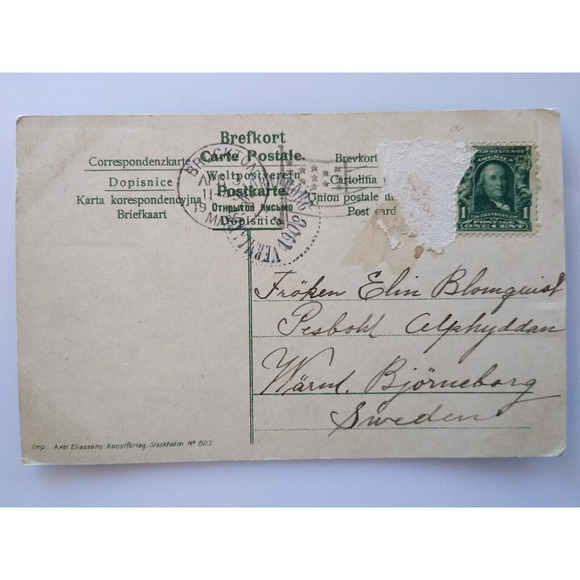 Brefkort
Carte Postale.
Weltpostverein
Postkarte.
Открытое письмо
Dopisnica.
Correspondenzkarte
Dopisnice
Karta korespondencyjna
Briefkaart
Brevkort
Cartolina
Union postale
Post card
BROCKTON
MASS
1
ONE CENT
Fröken Elin Blomquist
Pesbokl Alphyddan
Wärml. Björneborg
Sweden
Imp. Axel Eliassons Konstförlag, Stockholm No 823